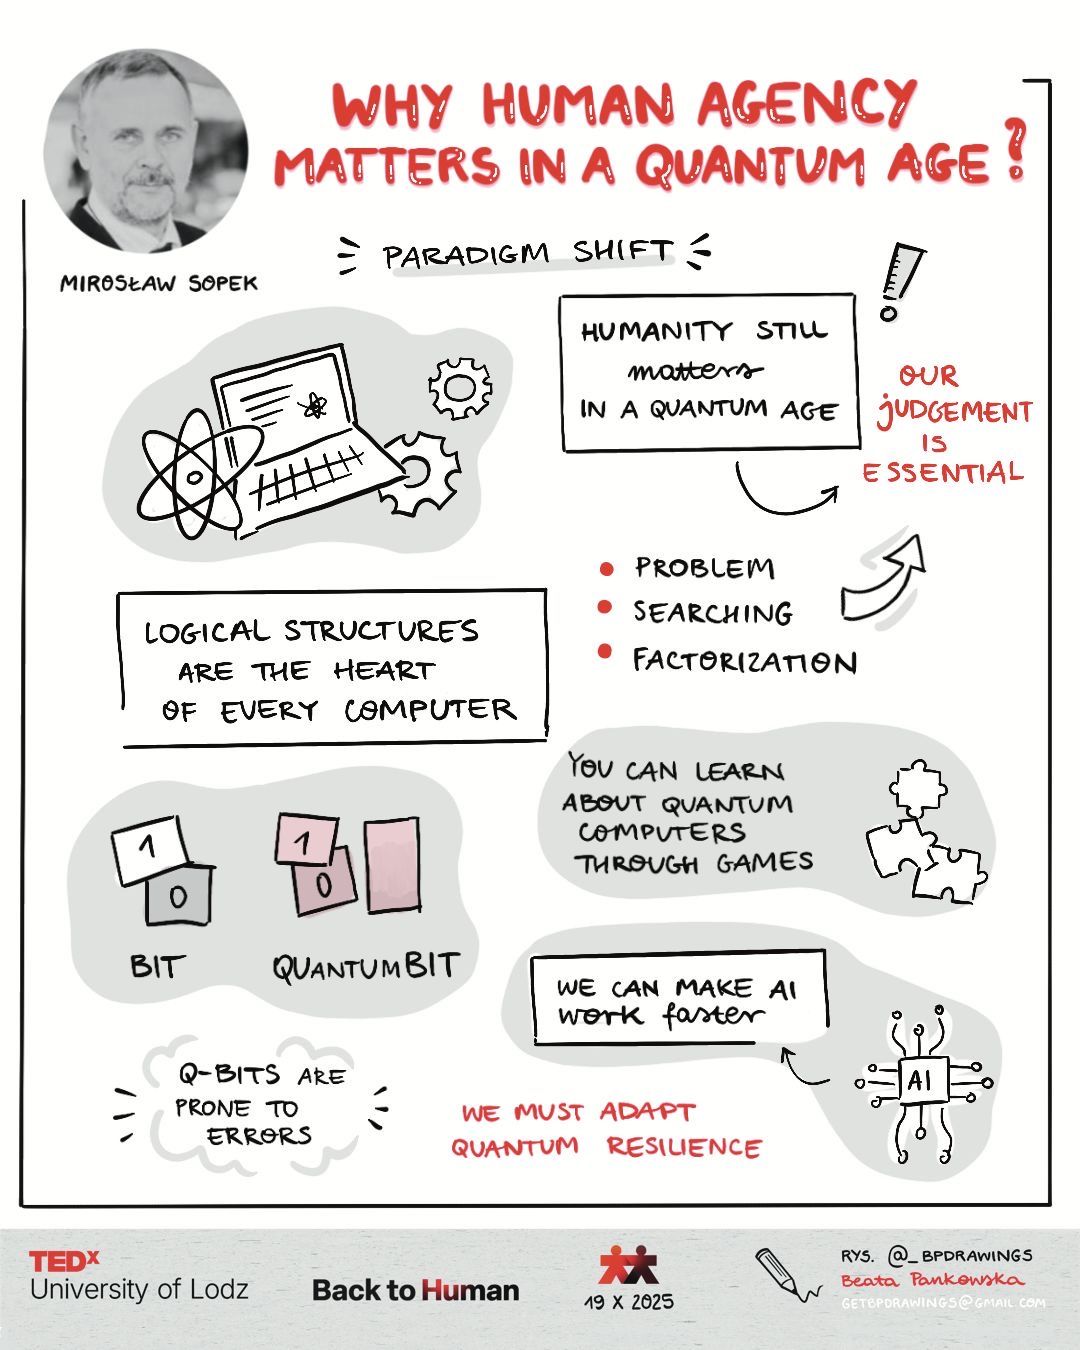 WHY HUMAN AGENCY
MATTERS IN A QUANTUM AGE?
MIROSŁAW SOPEK
PARADIGM SHIFT
HUMANITY STILL
matters
IN A QUANTUM AGE
OUR
JUDGEMENT
IS
ESSENTIAL
PROBLEM
SEARCHING
FACTORIZATION
LOGICAL STRUCTURES
ARE THE HEART
OF EVERY COMPUTER
YOU CAN LEARN
ABOUT QUANTUM
COMPUTERS
THROUGH GAMES
1
0
BIT
1
0
QUANTUMBIT
WE CAN MAKE AI
work faster
AI
Q-BITS ARE
PRONE TO
ERRORS
WE MUST ADAPT
QUANTUM RESILIENCE
TEDx
University of Lodz
Back to Human
19 X 2025
RYS. @_BPDRAWINGS
Beata Pankowska
GETBPDRAWINGS@GMAIL.COM